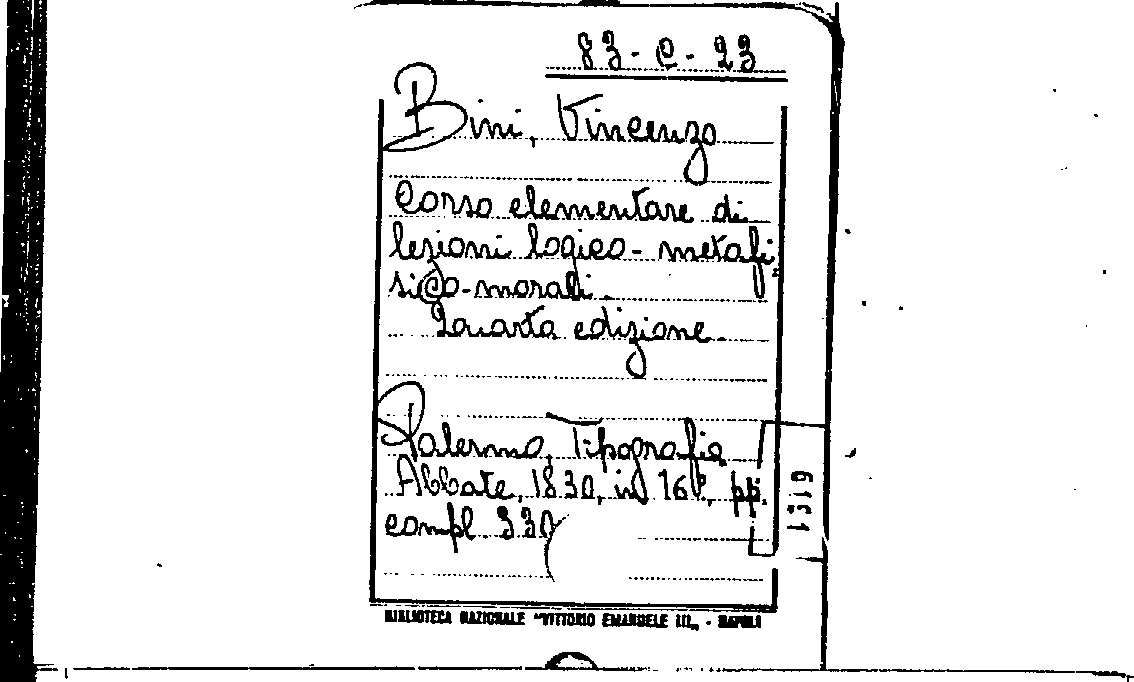 83-C-23
Bini, Vincenzo
Corso elementare di
lezioni logico-metafi
sico-morali.
Quarta edizione.
Palermo, Tipografia
Abbate, 1830, in 16°, pp.
compl. 330
BIBLIOTECA NAZIONALE "VITTORIO EMANUELE III„ - NAPOLI